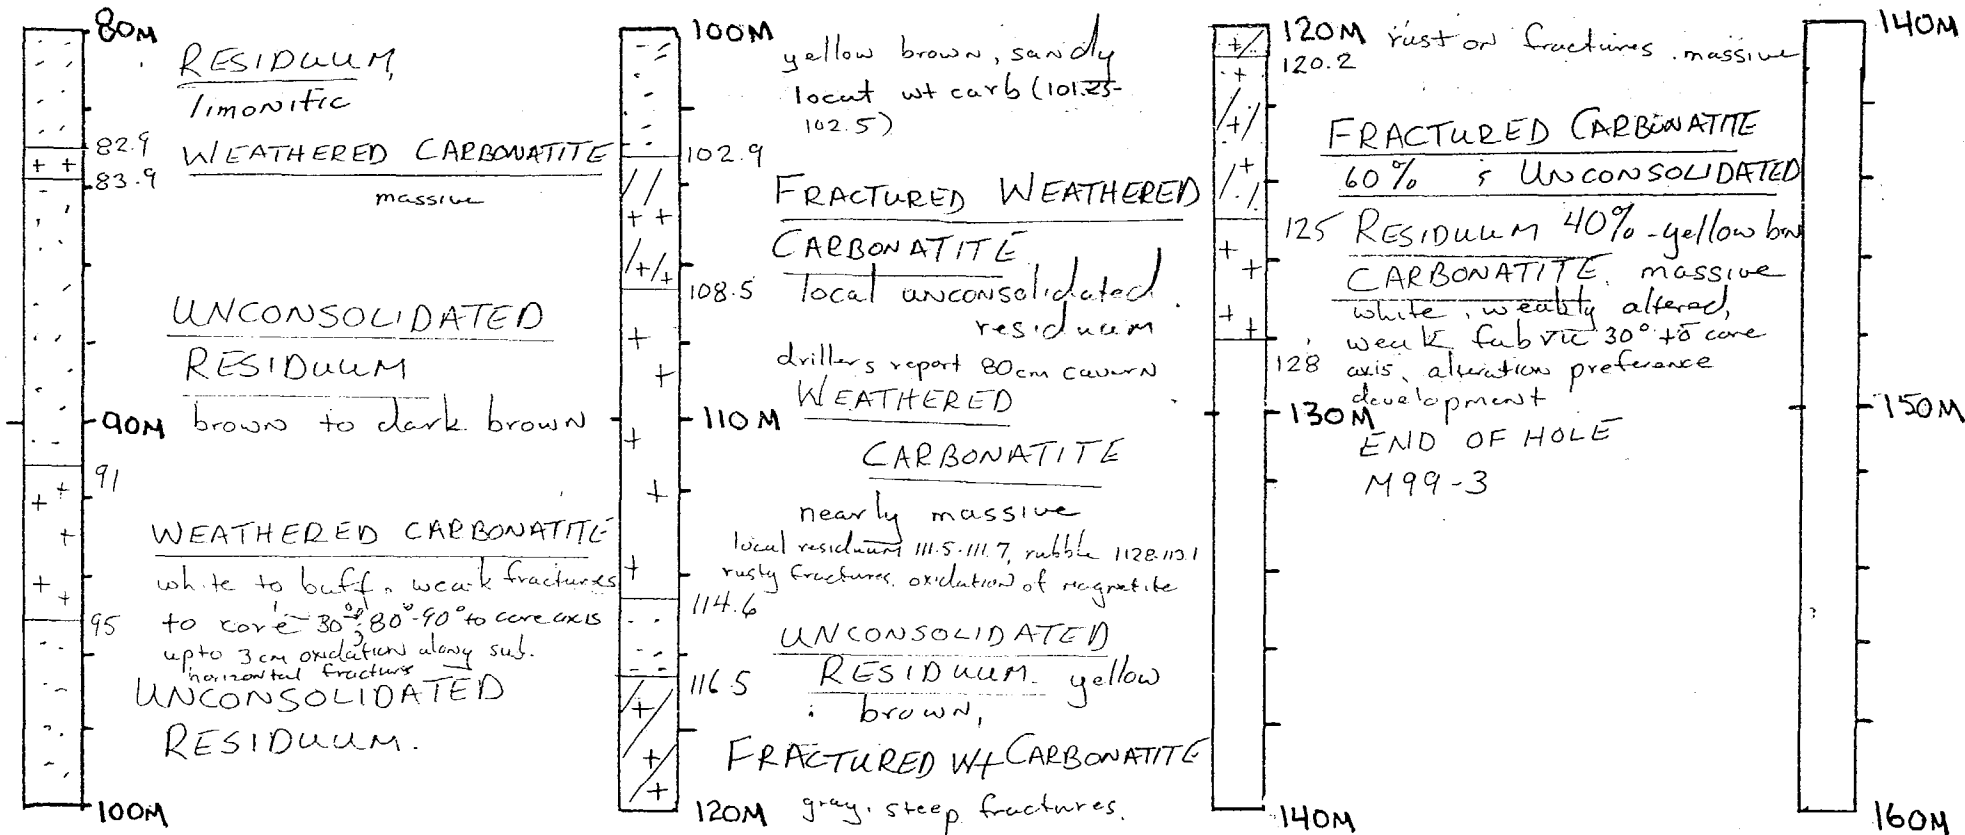 80M
RESIDUUM,
limonitic
82.9
WEATHERED CARBONATITE
83.9
massive
UNCONSOLIDATED
RESIDUUM
90M brown to dark brown
91
WEATHERED CARBONATITE
white to buff, weak fractures
95 to core 30° 80°-90° to core axis
upto 3 cm oxidation along sub.
horizontal fractures
UNCONSOLIDATED
RESIDUUM.
100M
100M
yellow brown, sandy
locat wt carb (101.25-
102.5)
102.9
FRACTURED WEATHERED
CARBONATITE
108.5 local unconsolidated
residuum
drillers report 80cm cavern
WEATHERED
110M
CARBONATITE
nearly massive
local residuum 111.5-111.7, rubble 112.8-113.1
rusty fractures. oxidation of magnetite
114.6
UNCONSOLIDATED
116.5 RESIDUUM. yellow
brown,
FRACTURED Wt CARBONATITE
120M gray. steep fractures.
120M rust on fractures. massive
120.2
FRACTURED CARBONATITE
60% ; UNCONSOLIDATED
125 RESIDUUM 40% - yellow bn
CARBONATITE. massive
white, weakly altered,
weak fabric 30° to core
128 axis, alteration preference
development
130M
END OF HOLE
M99-3
140M
140M
150M
160M